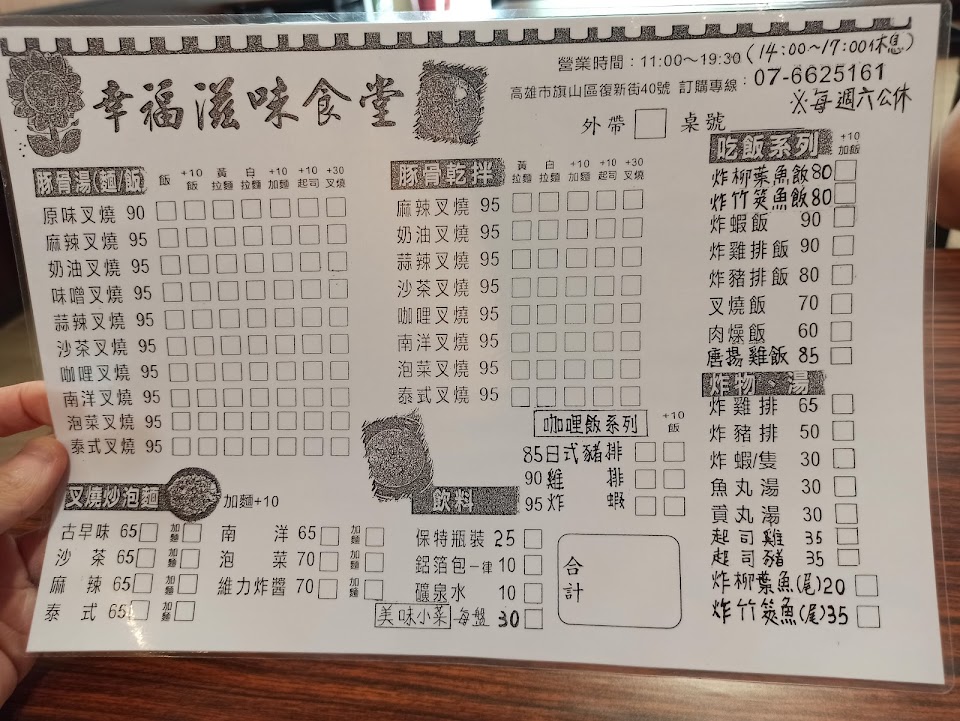 營業時間：11:00～19:30(14:00～17:00休息)
幸福滋味食堂
高雄市旗山區復新街40號 訂購專線：07-6625161
※每週六公休
外帶 桌號
豚骨湯(麵/飯) 飯 +10飯 黃拉麵 白拉麵 +10加麵 +10起司 +30叉燒
原味叉燒 90
麻辣叉燒 95
奶油叉燒 95
味噌叉燒 95
蒜辣叉燒 95
沙茶叉燒 95
咖哩叉燒 95
南洋叉燒 95
泡菜叉燒 95
泰式叉燒 95
豚骨乾拌 黃拉麵 白拉麵 +10加麵 +10起司 +30叉燒
麻辣叉燒 95
奶油叉燒 95
蒜辣叉燒 95
沙茶叉燒 95
咖哩叉燒 95
南洋叉燒 95
泡菜叉燒 95
泰式叉燒 95
咖哩飯系列 +10飯
85日式豬排
90雞排
95炸蝦
吃飯系列 +10加飯
炸柳葉魚飯80
炸竹筴魚飯80
炸蝦飯 90
炸雞排飯 90
炸豬排飯 80
叉燒飯 70
肉燥飯 60
唐揚雞飯 85
炸物、湯
炸雞排 65
炸豬排 50
炸蝦/隻 30
魚丸湯 30
貢丸湯 30
起司雞 35
起司豬 35
炸柳葉魚(尾)20
炸竹筴魚(尾)35
叉燒炒泡麵 加麵+10
古早味 65 加麵 南洋 65 加麵
沙茶 65 加麵 泡菜 70 加麵
麻辣 65 加麵 維力炸醬 70 加麵
泰式 65 加麵
飲料
保特瓶裝 25
鋁箔包一律 10
礦泉水 10
美味小菜 每盤 30
合計